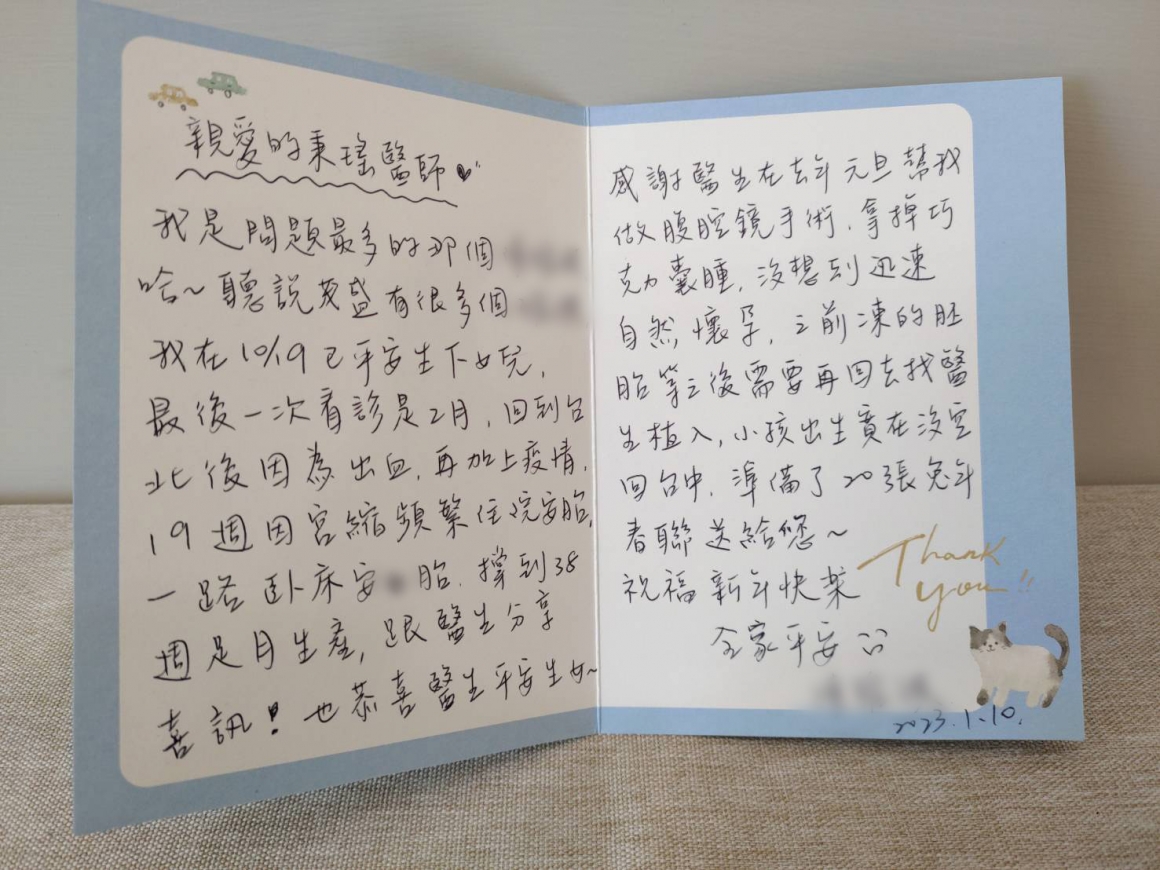 親愛的秉瑤醫師
我是問題最多的那個
哈～聽說茂盛有很多個
我在10/19已平安生下女兒,
最後一次看診是2月,回到台
北後因為出血,再加上疫情,
19週因宮縮頻繁住院安胎,
一路臥床安胎.撐到38
週足月生產,跟醫生分享
喜訊!也恭喜醫生平安生女~
感謝醫生在去年元旦幫我
做腹腔鏡手術.拿掉巧
克力囊腫,沒想到迅速
自然懷孕,之前凍的胚
胎等之後需要再回去找醫
生植入,小孩出生實在沒空
回台中.準備了20張兔年
春聯送給您~
祝福新年快樂
全家平安
Thank
you!!
2023.1.10.